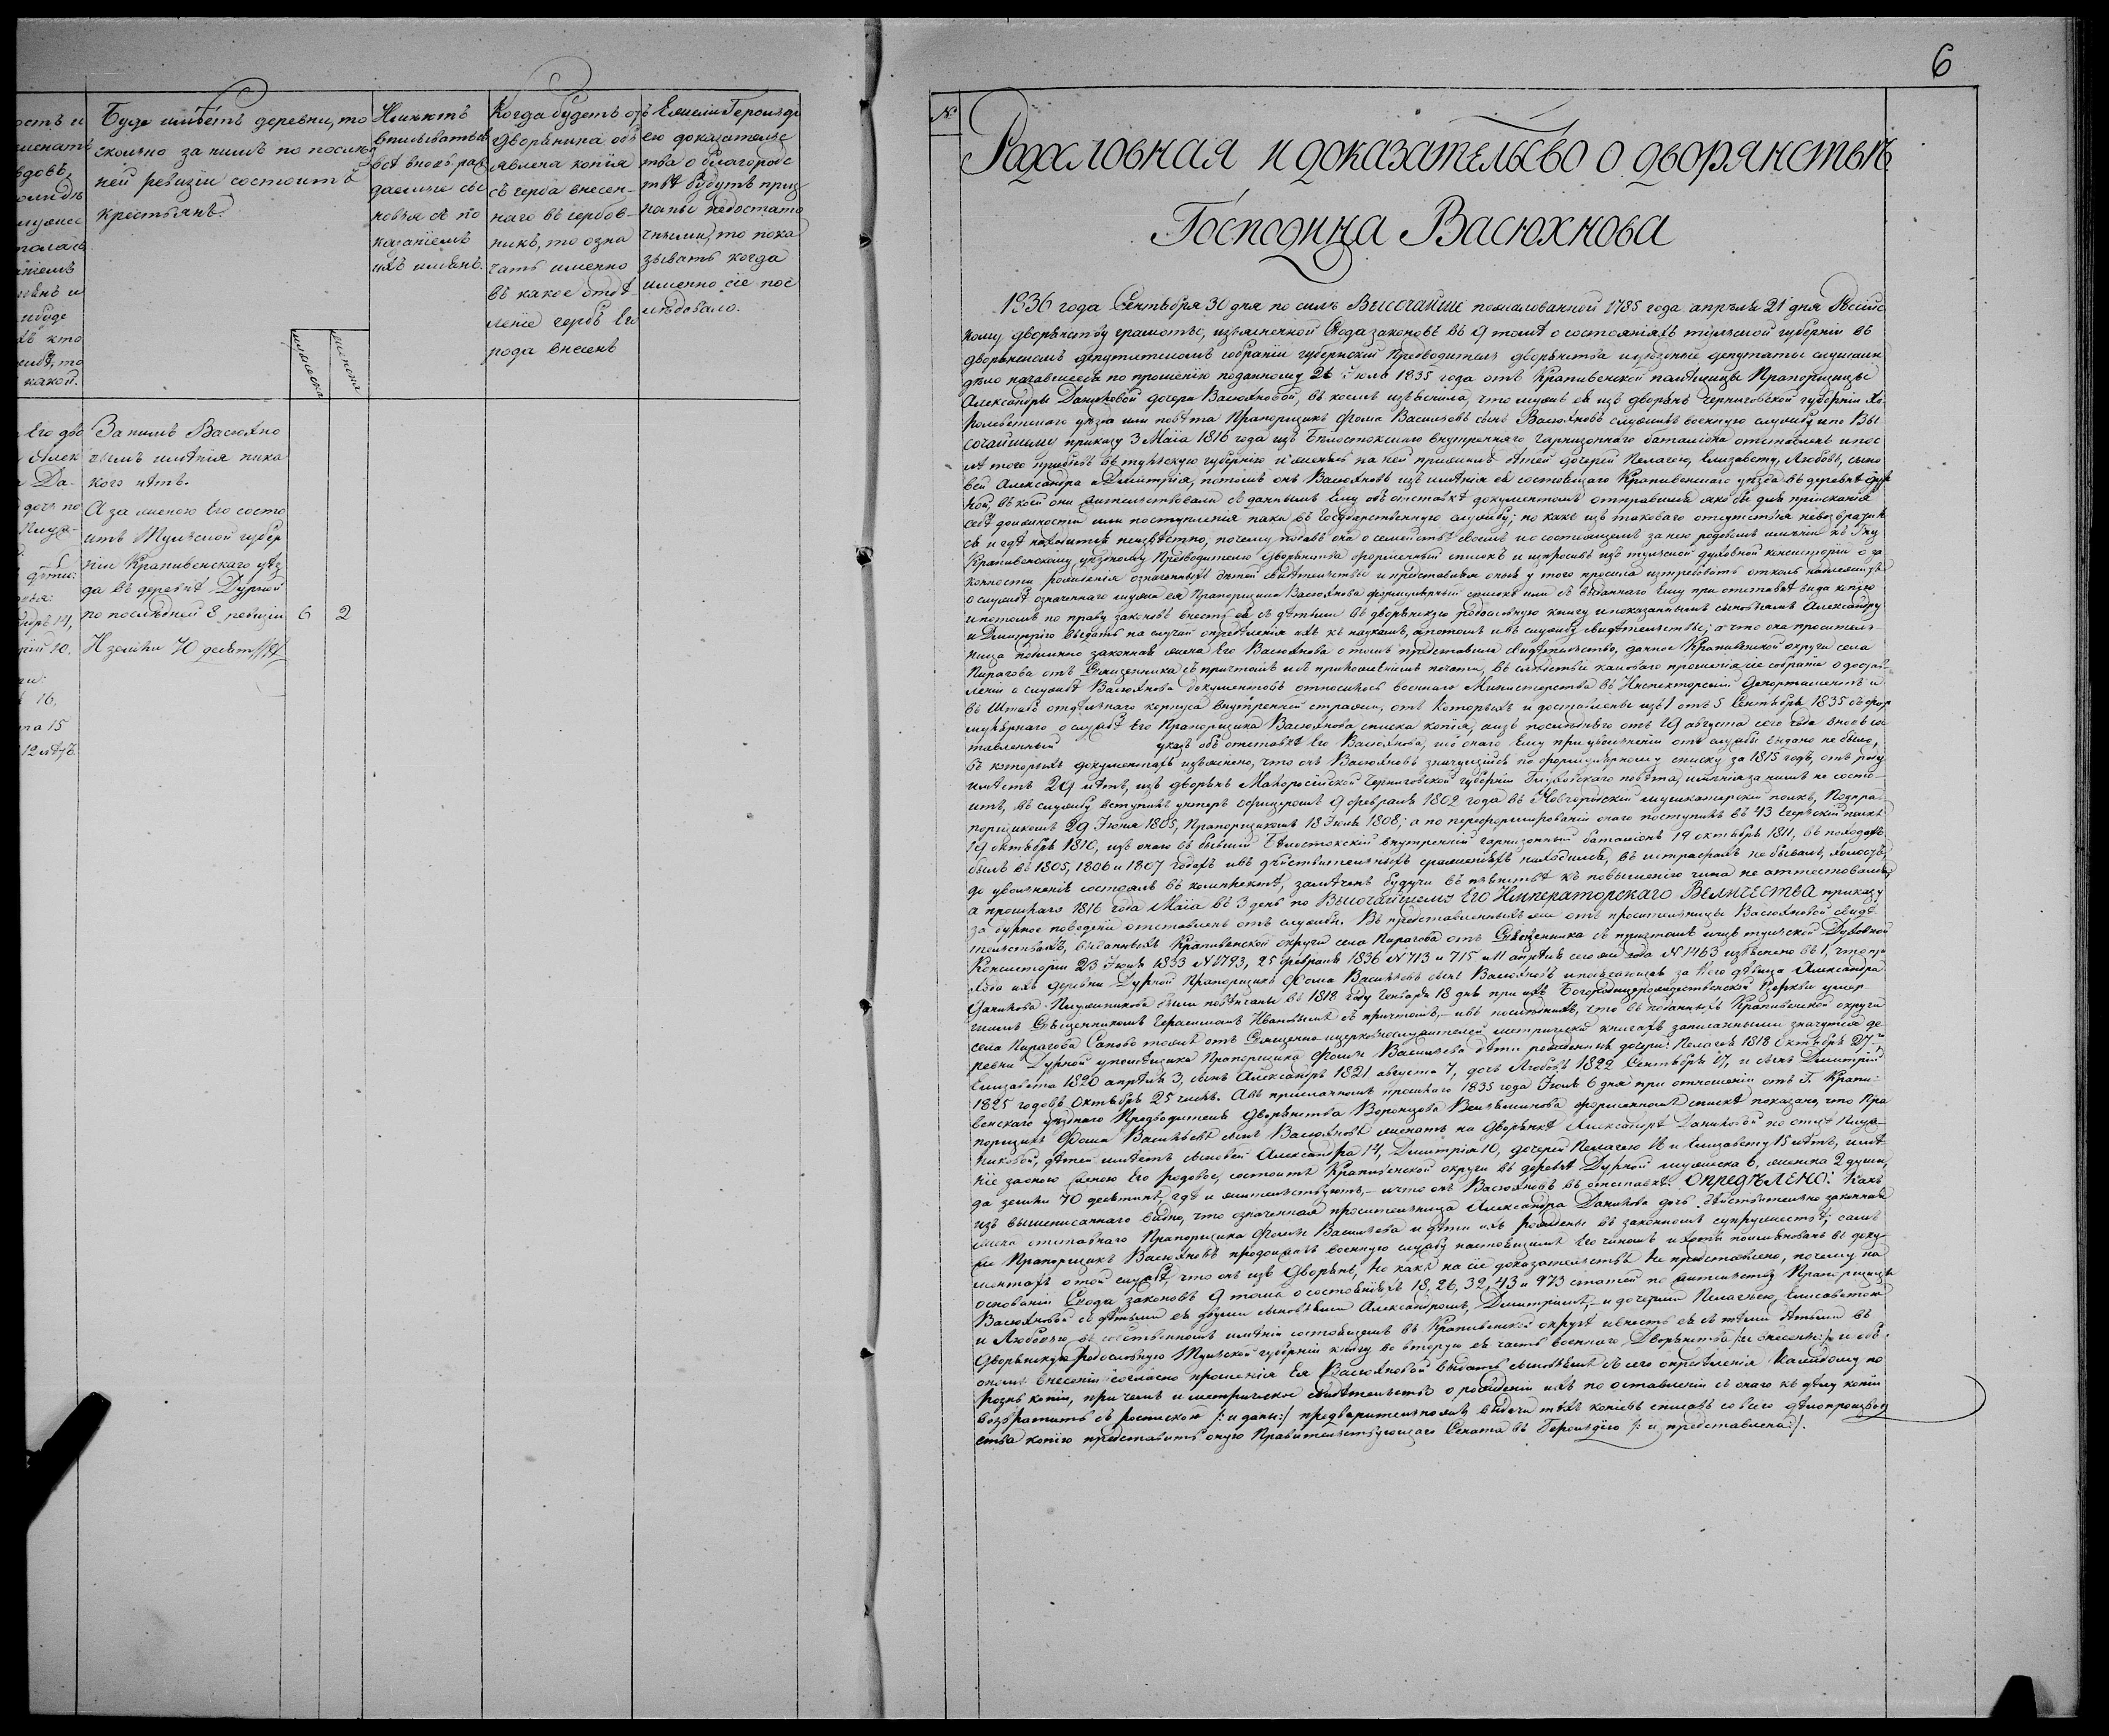 6
Буде имѣетъ деревни, то
сколько за нимъ по послѣд
ней ревизіи состоитъ
крестьянъ.
мужеска
женска
Имѣютъ
вписыватьс
всѣ вновь раж
даемые сы
новья съ по
казаніемъ
ихъ именъ.
Когда будетъ отъ
Дворянина объ
явлена копія
съ герба внесен-
наго въ гербов-
никъ, то озна
чать именно
въ какое отдѣ-
леніе гербъ Его
рода внесенъ
Ежели Герольді
ею доказательс
тва о благородс
твѣ будутъ приз
наны недостато
чными, то пока
зывать когда
именно сіе пос
лѣдовало.
За нимъ Васюхно
вымъ имѣнія ника
кого нѣтъ.
А за женою Его состо
итъ Тульской губер
ніи Крапивенскаго уѣз
да въ деревнѣ Дурной
по послѣдней 8 ревизіи 6 2
И земли 70 десят
№
Родословная и доказательство о дворянствѣ
Господина Васюхнова
1836 года Сентября 30 дня по силѣ Высочайше пожалованной 1785 года апрѣля 21 дня Россійс
кому дворянству грамоты, изъясненной Свода законовъ въ 9 томѣ о состояніяхъ тульской губерніи въ
дворянскомъ депутатскомъ собраніи губернскій Предводитель дворянства и уѣздные депутаты слушали
дѣло начавшееся по прошенію поданному 26 Іюля 1835 года отъ Крапивенской помѣщицы Прапорщицы
Александры Даниловой дочери Васюхновой, въ коемъ изъяснила, что мужъ ея изъ дворянъ Черниговской губерніи
уѣзда или повѣта Прапорщикъ Фома Васильевъ сынъ Васюхновъ служилъ военную службу и по Вы
сочайшему приказу 3 Маія 1816 года изъ Бѣлостокскаго внутренняго гарнизоннаго баталіона отставленъ и пос
лѣ того прибывъ въ тульскую губернію и женясь на ней прижилъ дѣтей дочерей Пелагею, Елизавету, Любовь, сыно
вей Александра и Димитрія, потомъ онъ Васюхновъ изъ имѣнія ея состоящаго Крапивенскаго уѣзда въ деревнѣ Дур
ной, въ коей они жительствовали съ даннымъ Ему объ отставкѣ документомъ отправился яко бы для пріисканія
себѣ должности или поступленія паки въ Государственную службу; но какъ изъ таковаго отсутствія невозвратил
ся и гдѣ находится неизвѣстно, почему подавъ она о семействѣ своемъ и о состоящемъ за нею родовомъ имѣніи къ Гну
Крапивенскому уѣздному Предводителю Дворянства форменный списокъ и испросивъ изъ тульской духовной консисторіи о за
конности рожденія означенныхъ дѣтей свидѣтельствы и представляя оныя у того просила истребовать отколь надлежитъ
о службѣ означеннаго мужа ея Прапорщика Васюхнова формулярный списокъ или съ выданнаго Ему при отставкѣ вида копію
и потомъ по праву законовъ внесть ея съ дѣтьми въ дворянскую родословную книгу и показаннымъ сыновьямъ Александру
и Димитрію выдать на случай опредѣленія ихъ къ наукамъ, а потомъ и въ службу свидѣтельствы; а что она проситель-
ница подлинно законная жена Его Васюхнова о томъ представила свидѣтельство, данное Крапивенской округи села
Пирогова отъ Священника съ причтомъ и съ приложеніемъ печати, въ слѣдствіе каковаго прошенія сіе собраніе о достав-
леніи о службѣ Васюхнова документовъ относилось военнаго Министерства въ Инспекторскій Департаментъ и
въ Штабъ отдѣльнаго корпуса внутренней стражи, отъ которыхъ и доставлены изъ 1 отъ 5 Сентября 1835 съ фор
мулярнаго о службѣ Его Прапорщика Васюхнова списка копія, а изъ послѣдняго отъ 29 августа сего года вновь сос
тавленный указъ объ отставкѣ Его Васюхнова, ибо онаго Ему при увольненіи отъ службы выдано не было,
въ которыхъ документахъ изъяснено, что онъ Васюхновъ значущійся по формулярному списку за 1815 годъ, отъ роду
имѣетъ 29 лѣтъ, изъ дворянъ Малороссійской Черниговской губерніи Глуховскаго повѣта, имѣнія за нимъ не состо-
итъ, въ службу вступилъ унтеръ офицеромъ 9 февраля 1802 года въ Новгородскій мушкатерскій полкъ, Подпра-
порщикомъ 29 Іюня 1805, Прапорщикомъ 18 Іюля 1808; а по переформированіи онаго поступилъ въ 43 Егерскій полкъ
19 октября 1810, изъ онаго въ бывшій Бѣлостокскій внутренній гарнизонный баталіонъ 19 октября 1811, въ походахъ
былъ въ 1805, 1806 и 1807 годахъ и въ дѣйствительныхъ сраженіяхъ находился, въ штрафахъ не бывалъ, холостъ,
до увольненія состоялъ въ комплектѣ, замѣченъ будучи въ пьянствѣ къ повышенію чина не аттестовался,
а прошлаго 1816 года Маія въ 3 день по Высочайшему Его Императорскаго Величества приказу
за дурное поведеніе отставленъ отъ службы. Въ представленныхъ же отъ просительницы Васюхновой свидѣ
тельствахъ, выданныхъ Крапивенской округи села Пирогова отъ Священника съ причтомъ и изъ тульской Духовной
Консисторіи 23 Іюля 1833 № 1793, 25 февраля 1836 № 713 и 715 и 11 апрѣля сего же года № 1463 изъяснено въ 1, что при
хода ихъ деревни Дурной Прапорщикъ Фома Васильевъ сынъ Васюхновъ и посягающая за него дѣвица Александра
Данилова были повѣнчаны въ 1818 году Генваря 18 дня при ихъ Богородицерождественской Церкви умер
шимъ Священникомъ Герасимомъ Ивановымъ съ причтомъ,- и въ послѣднихъ, что въ поданныхъ Крапивенской округи
села Пирогова тожъ отъ Священно-церковнослужителей метрическихъ книгахъ записанными значутся де
ревни Дурной у помѣщика Прапорщика Фомы Васильева дѣти рожденныя дочери: Пелагея 1818 Октября 27-го
Елизавета 1820 апрѣля 3, сынъ Александръ 1821 августа 7, дочь Любовь 1822 Сентября 17, и сынъ Димитрій
1825 годовъ Октября 25 числъ. А въ присланномъ прошлаго 1835 года Іюля 6 дня при отношеніи отъ Г. Крапи-
венскаго уѣзднаго Предводителя Дворянства Воронцова Вельяминова форменномъ спискѣ показано, что Пра
порщикъ Фома Васильевъ сынъ Васюхновъ женатъ на дворянкѣ Александрѣ Даниловой по отцѣ
дѣтей имѣетъ сыновей Александра 14, Димитрія 10, дочерей Пелагею 16 и Елизавету 15 лѣтъ, имѣ-
ніе за оною женою Его родовое, состоитъ Крапивенской округи въ деревнѣ Дурной мужеска 6, женска 2 души,
да земли 70 десятинъ гдѣ и жительствуютъ,- и что онъ Васюхновъ въ отставкѣ. ОПРЕДѢЛЕНО: Какъ
изъ вышеписаннаго видно, что означенная просительница Александра Данилова дочь дѣйствительно законная
жена отставнаго Прапорщика Фомы Васильева и дѣти ихъ рождены въ законномъ супружествѣ; самъ
же Прапорщикъ Васюхновъ продолжалъ военную службу настоящимъ Его чиномъ и хотя поименованъ въ доку-
ментахъ о той службѣ, что онъ изъ Дворянъ, но какъ на сіе доказательствъ не представлено, почему на
основаніи Свода законовъ 9 тома о состояніяхъ 18, 26, 32, 43 и 973 статей по жительству Прапорщицы
Васюхновой съ дѣтьми ея двумя сыновьями Александромъ, Димитріемъ,- и дочерьми Пелагьею, Елисаветою
и Любовью, въ собственномъ имѣніи состоящемъ въ Крапивенской округѣ и внесть ея съ тѣми дѣтьми въ
дворянскую Родословную Тульской губерніи книгу во вторую ея часть военнаго Дворянства /:и внесены:/ и объ
ономъ внесеніи согласно прошенія Ея Васюхновой выдать сыновьямъ съ сего опредѣленія каждому по
розну копіи, при чемъ и метрическое свидѣтельствы о рожденіи ихъ по оставленіи съ онаго къ дѣлу копіи
возвратить съ роспискою /:и даны:/ предварительно же выдачи тѣхъ копіевъ списавъ со всего дѣлопроизвод
ства копію представить оную Правительствующаго Сената въ Герольдію /:и представлена:/.